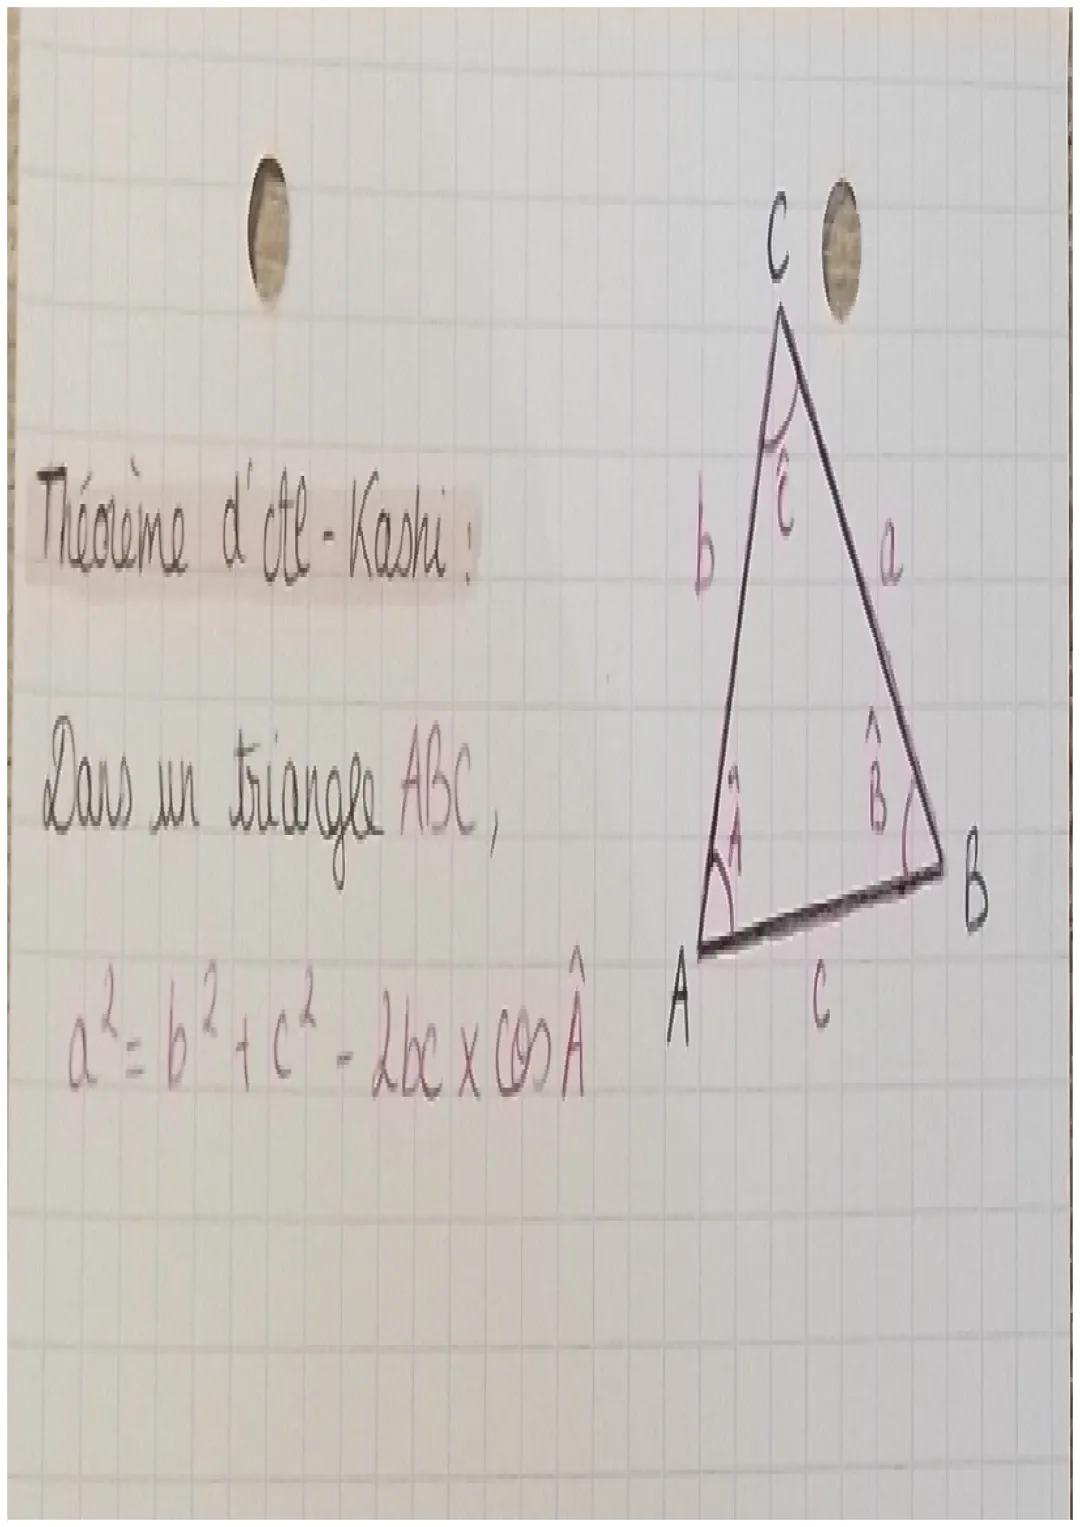 Théorème d'Al-Kashi :
Dans un triangle ABC,
a² = b² + c² - 2bc x cos Â
C
Ĉ
b
a
Â
B̂
B
A
c